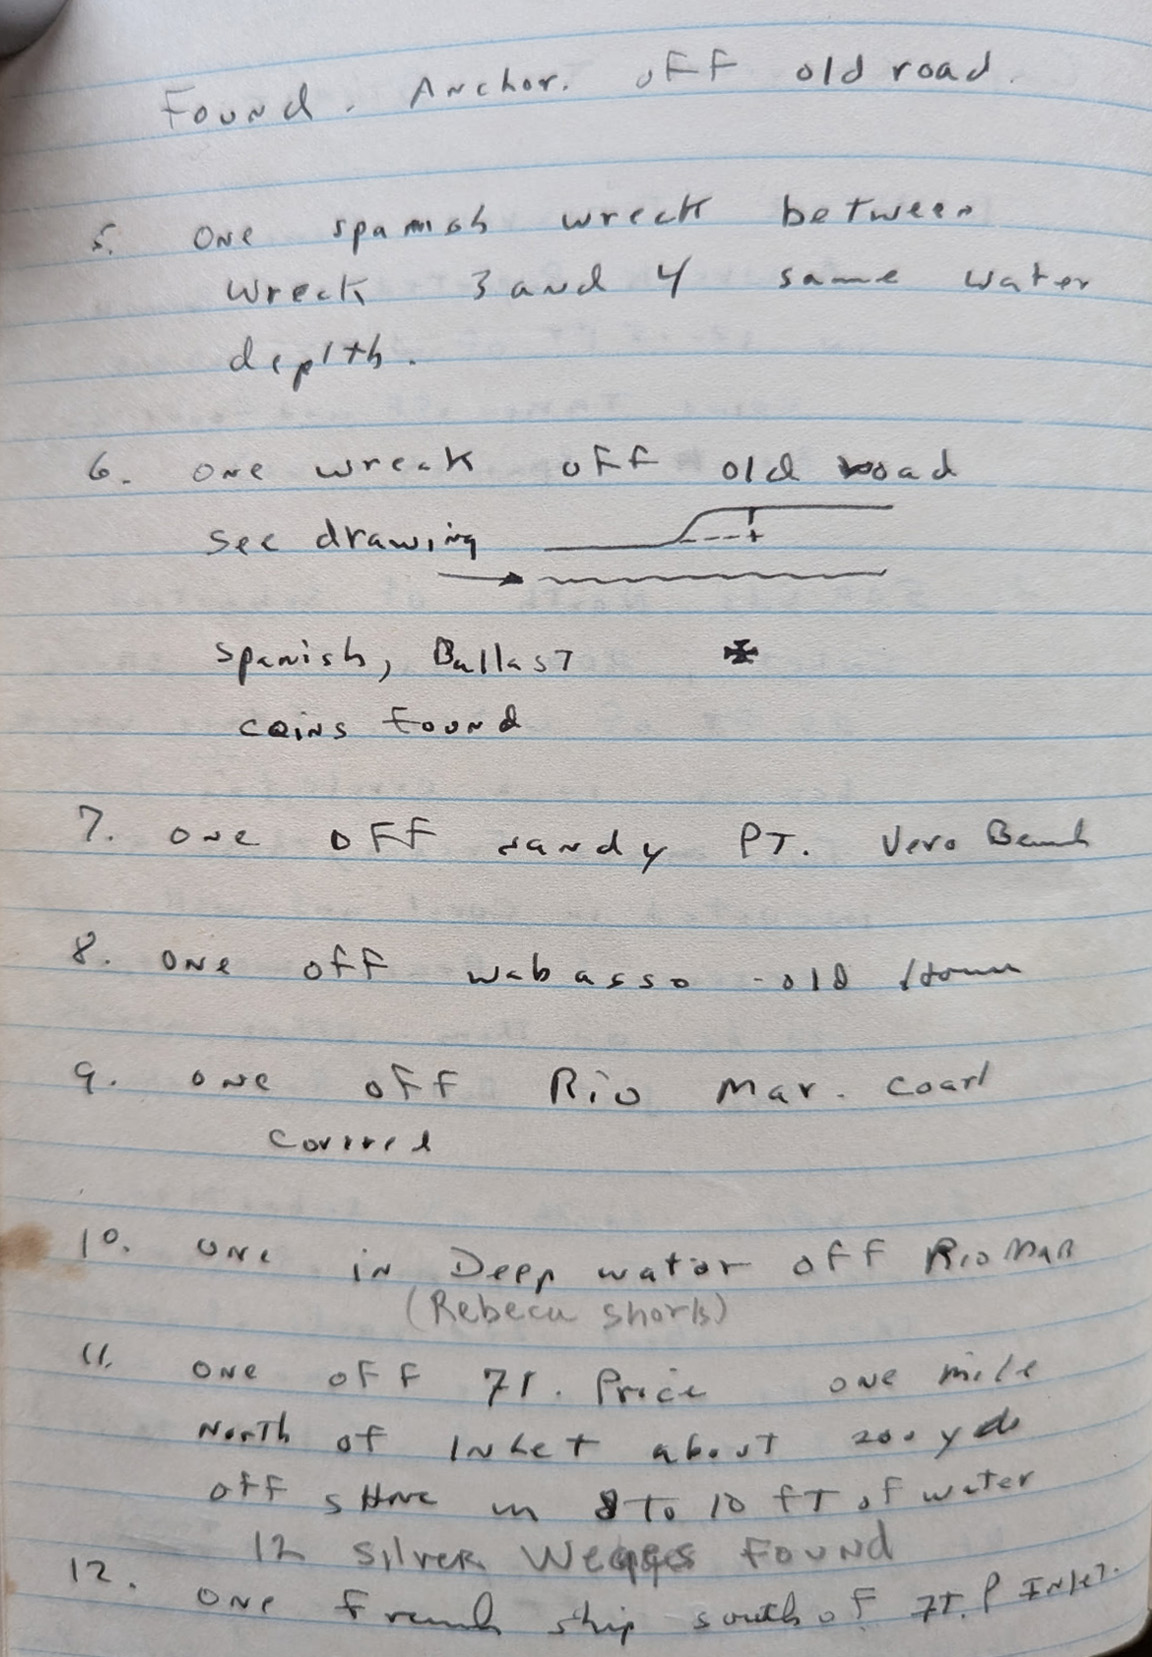 Found. Anchor. off old road.
5. one spanish wreck between
wreck 3 and 4 same water
deplth.
6. one wreck off old road
see drawing
spanish, Ballast
coins found
7. one off sandy PT. Vero Beach
8. one off wabasso - old
9. one off Rio Mar. coarl
covered
10. one in Deep water off Rio Mar
(Rebeca shorls)
11. one off FT. Price one mile
North of Inlet about 200 yds
off shore in 8 To 10 fT of water
12 Silver Wedges Found
12. one french ship south of FT. P Inlet.